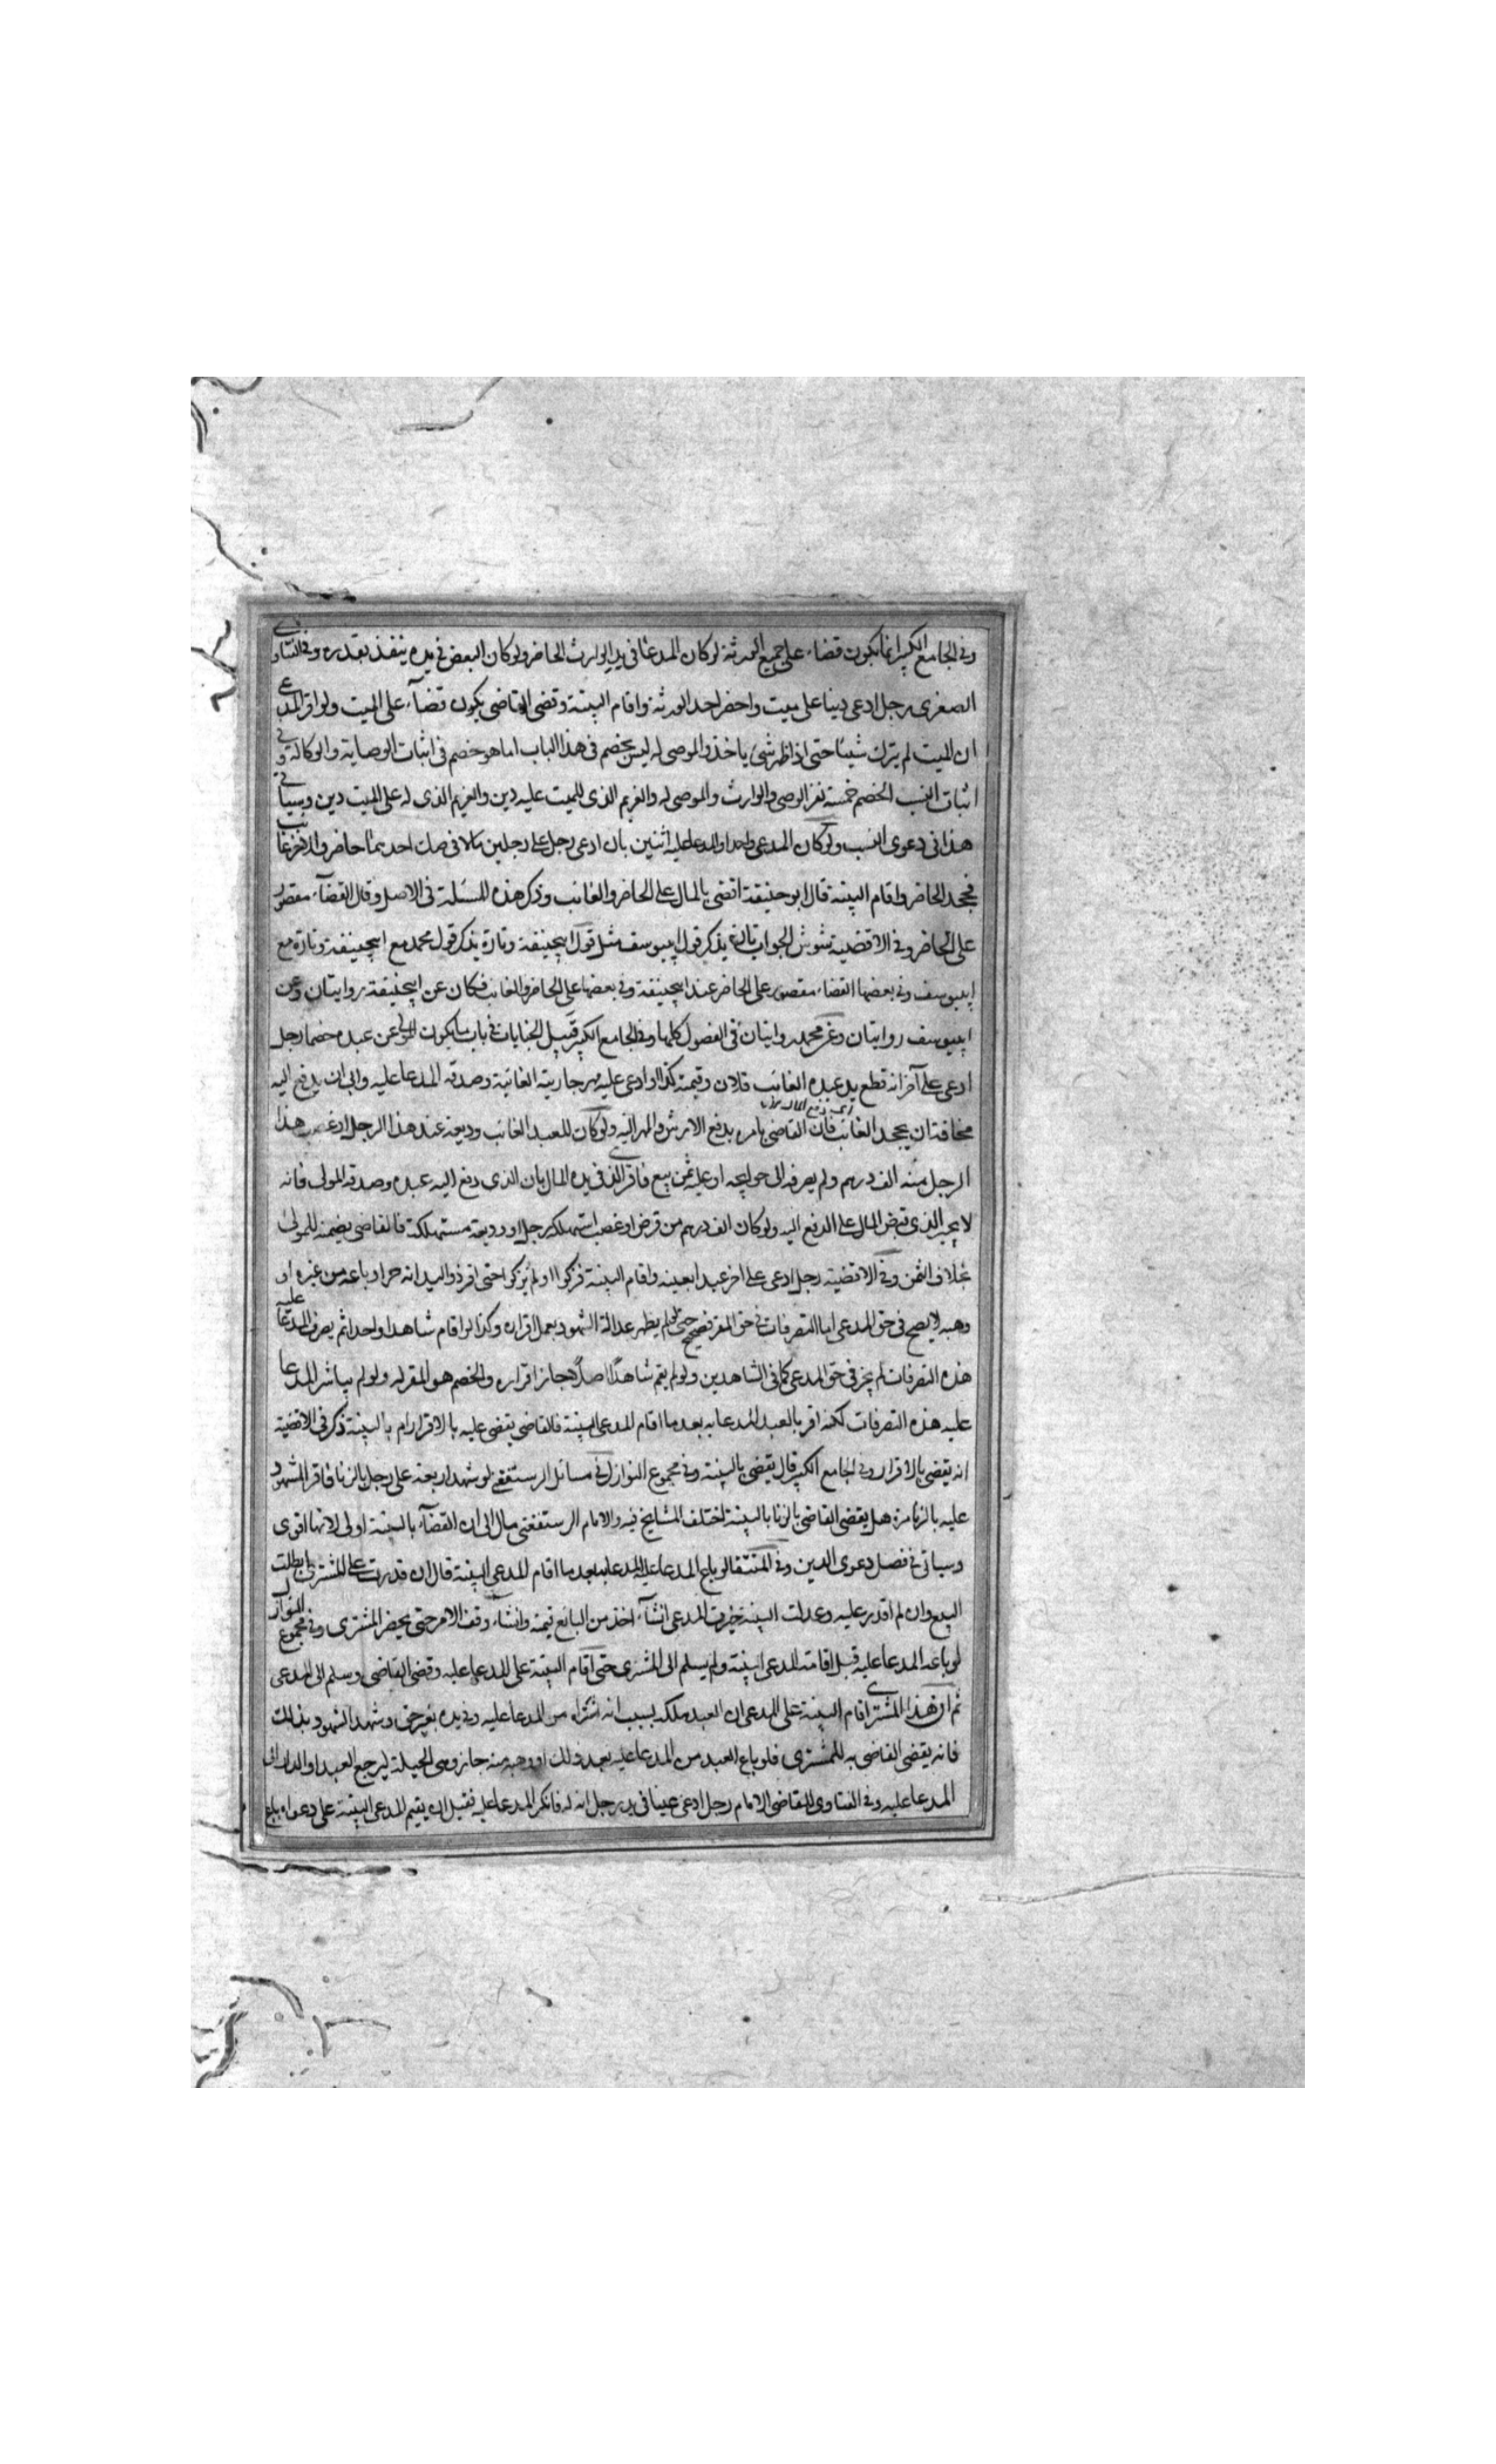 وفي الجامع الكبير انما يكون قضاء على جميع الورثة لو كان المدعا في يد الوارث الحاضر ولو كان البعض في يده ينفذ بقدره وفي الفتاوى
الصغرى رجل ادعى دينا على ميت واحضر احد الورثة واقام البينة وقضى القاضى يكون قضآء على الميت ولو اقر المدعى
ان الميت لم يترك شيئا حتى اذا ظهر شئ ياخذ والموصى له ليس بخصم فى هذا الباب اما هو خصم فى اثبات الوصاية والوكالة وفى
اثبات النسب الخصم خمسة نفر الوصى والوارث والموصى له والغريم الذى للميت عليه دين والغريم الذى له على الميت دين وسياتى
هذا فى دعوى النسب ولو كان المدعى واحدا والمدعا عليه اثنين بان ادعى رجل على رجلين مالا فى صك احدهما حاضر والاخر غايب
فجحد الحاضر واقام البينة قال ابو حنيفة اقضى بالمال على الحاضر والغائب وذكر هذه المسئلة فى الاصل وقال القضآء مقصور
على الحاضر وفى الاقضية شوش الجواب تارة يذكر قول ابيوسف مثل قول ابيحنيفة وتارة يذكر قول محمد مع ابيحنيفة وتارة مع
ابييوسف وفى بعضها القضاء مقصور على الحاضر عند ابيحنيفة وفى بعضها على الحاضر والغائب فكان عن ابيحنيفة روايتان وعن
ابييوسف روايتان وعن محمد روايتان فى الفصول كلها وفى الجامع الكبير قبيل الجنايات فى باب ما يكون المولى عن عبده خصما رجل
ادعى على آخر انه قطع يد عبده الغائب فلان وقيمته كذا او ادعى عليه مهر جاريته الغائبة وصدقه المدعا عليه وابى ان يدفع اليه
مخافة ان يجحد الغائب فان القاضى يامره بدفع الارش والمهر اليه ولو كان للعبد الغائب وديعة عند هذا الرجل او غصب هذا
الرجل منه الف درهم ولم يصرفه الى حوايجه او عليه ثمن بيع فاقر الذى فى يده المال بان الذى دفع اليه عبده وصدقه المولى فانه
لا يجبر الذى قبض المال على الدفع اليه ولو كان الف درهم من قرض او غصب استهلكه رجل او وديعة مستهلكة فالقاضى يضمنه للمولى
بخلاف الثمن وفى الاقضية رجل ادعى على اخر عبدا بعينه واقام البينة فزكوا او لم يزكوا حتى اقر ذو اليد انه حر او باعه من غيره او
وهبه لا يصح فى حق المدعى اما التصرفات فى حق المقر فصحيح حتى لو لم يظهر عدالة الشهود يعمل اقراره وكذا لو اقام شاهدا واحدا ثم يصرف المدعا عليه
هذه التصرفات لم يجز فى حق المدعى كما فى الشاهدين ولو لم يقم شاهدا اصلا جاز اقراره والخصم هو المقر له ولو لم يباشر المدعا
عليه هذه التصرفات لكنه اقر بالعبد المدعا به بعد ما اقام المدعى البينة فالقاضى يقضى عليه بالاقرار ام بالبينة ذكر فى الاقضية
انه يقضى بالاقرار وفى الجامع الكبير قال يقضى بالبينة وفى مجموع النوازل فى مسائل الرستغفنى لو شهد اربعة على رجل بالزنا فاقر المشهود
عليه بالزنا مرة هل يقضى القاضى بالزنا بالبينة اختلف المشايخ فيه والامام الرستغفنى مال الى ان القضآء بالبينة اولى لانها اقوى
وسياتى فى فصل دعوى الدين وفى المنتقا لو باع المدعا عليه المدعا به بعد ما اقام المدعى البينة قال ان قدرت على المشترى ابطلت
البيع وان لم اقدر عليه وعدلت البينة خيرت المدعى ان شآء اخذ من البائع قيمته وان شاء وقف الامر حتى يحضر المشترى وفى مجموع النوازل
لو باعه المدعا عليه قبل اقامة المدعى البينة ولم يسلم الى المشترى حتى اقام البينة على المدعا عليه وقضى القاضى وسلم الى المدعى
ثم ان هذا المشترى اقام البينة على المدعى ان العبد ملكه بسبب انه اشتراه من المدعا عليه وفى يده بغير حق وشهد الشهود بذلك
فانه يقضى القاضى به للمشترى فلو باع العبد من المدعا عليه بعد ذلك او وهبه منه جاز وهى الحيلة ليرجع العبد او الدار الى
المدعا عليه وفى الفتاوى للقاضى الامام رجل ادعى عينا فى يد رجل انه له فانكر المدعا عليه فقبل ان يقيم المدعى البينة على دعواه باع